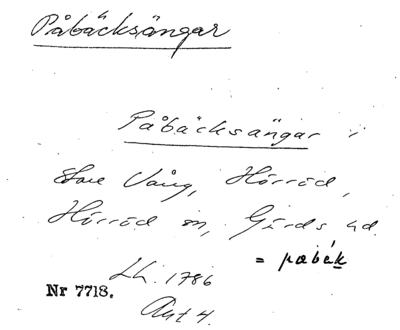 Påbäcksängar
Påbäcksängar i
Stora Vång, Hörröd,
Hörröd sn, Gärds hd.
= pabæk
Lk. 1786
Nr 7718.
Akt 4.